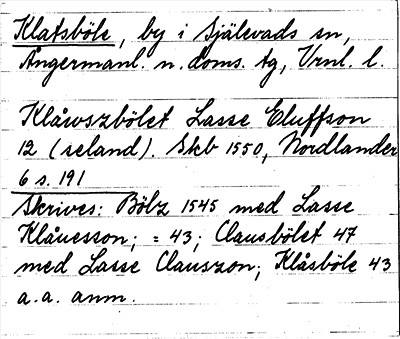 Klatsböle, by i Själevads sn,
Ångermanl. n. doms. tg, Vrnl. l.
Klåwszbölet Lasse Eluffson
12 (seland). Skb 1550, Nordlander
6 s. 191
Skrives: Bölz 1545 med Lasse
Klåuesson; = 43; Clausbölet 47
med Lasse Clauszon; Klåsböle 43
a. a. anm.